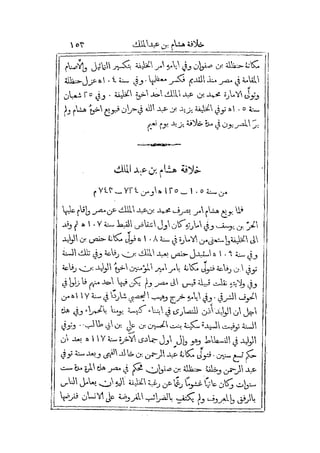 خلافة هشام بن عبد الملك ١٥٣
مكانهُ حنظلة بن صفوان وفي ايامهِ امر الخليفة بتكسير التماثيل والاصنام
المقامة في مصر منذ القديم فكسر معظمها. وفي سنة ١٠٤ ه عزل حنظلة
وتولى الامارة محمد بن عبد الملك احد اخوة الخليفة. وفي ٢٥ شعبان
سنة ١٠٥ ه توفي الخليفة يزيد بن عبد الله في حران فبويع اخوهُ هشام ولم
يرَ المصريون في مدة خلافة يزيد يوم نعيم
خلافة هشام بن عبد الملك
من سنة ١٠٥ — ١٢٥ ه او من ٧٢٤ — ٧٤٣ م
فلما بويع هشام امر بصرف محمد بن عبد الملك عن مصر واقام عليها
الحر بن يوسف وفي امارته كان اول انتقاض القبط سنة ١٠٧ ه ثم وفد
الى الخليفة واستعفى من الامارة في سنة ١٠٨ ه فتولى مكانهُ حفص بن الوليد
وفي سنة ١٠٩ ه استبدل حفص بعبد الملك بن رفاعة وفي تلك السنة
توفي ابن رفاعة فتولى مكانهُ بامر امير المؤمنين اخوهُ الوليد بن رفاعة
وفي ولايته نقلت قبيلة قيس الى مصر ولم يكن فيها احد منهم فانزلوا في
الحوف الشرقي. وفي ايامهِ خرج وهيب اليحصبي شاردًا في سنة ١١٧ ه من
اجل ان الوليد أذن للنصارى في ابتناء كنيسة يومنا بالحمراء. وفي هذه
السنة توفيت السيدة سكينة بنت الحسين بن علي بن ابي طالب.. وتوفي
الوليد في الفسطاط وهو والٍ اول جمادى الآخرة سنة ١١٧ ه بعد ان
حكم تسع سنين. فتولى مكانهُ عبد الرحمن بن خالد الفهمي وبعد سنة توفي
عبد الرحمن وخلفهُ حنظلة بن صفوان فحكم في مصر هذه المرة مدة ست
سنوات وكان عاتيًا غشومًا رغمًا عن رغبة الخليفة اليهِ ان يعامل الناس
بالرفق والمعروف ولم يكتفِ بالضرائب المفروضة على الانسان ففرضها